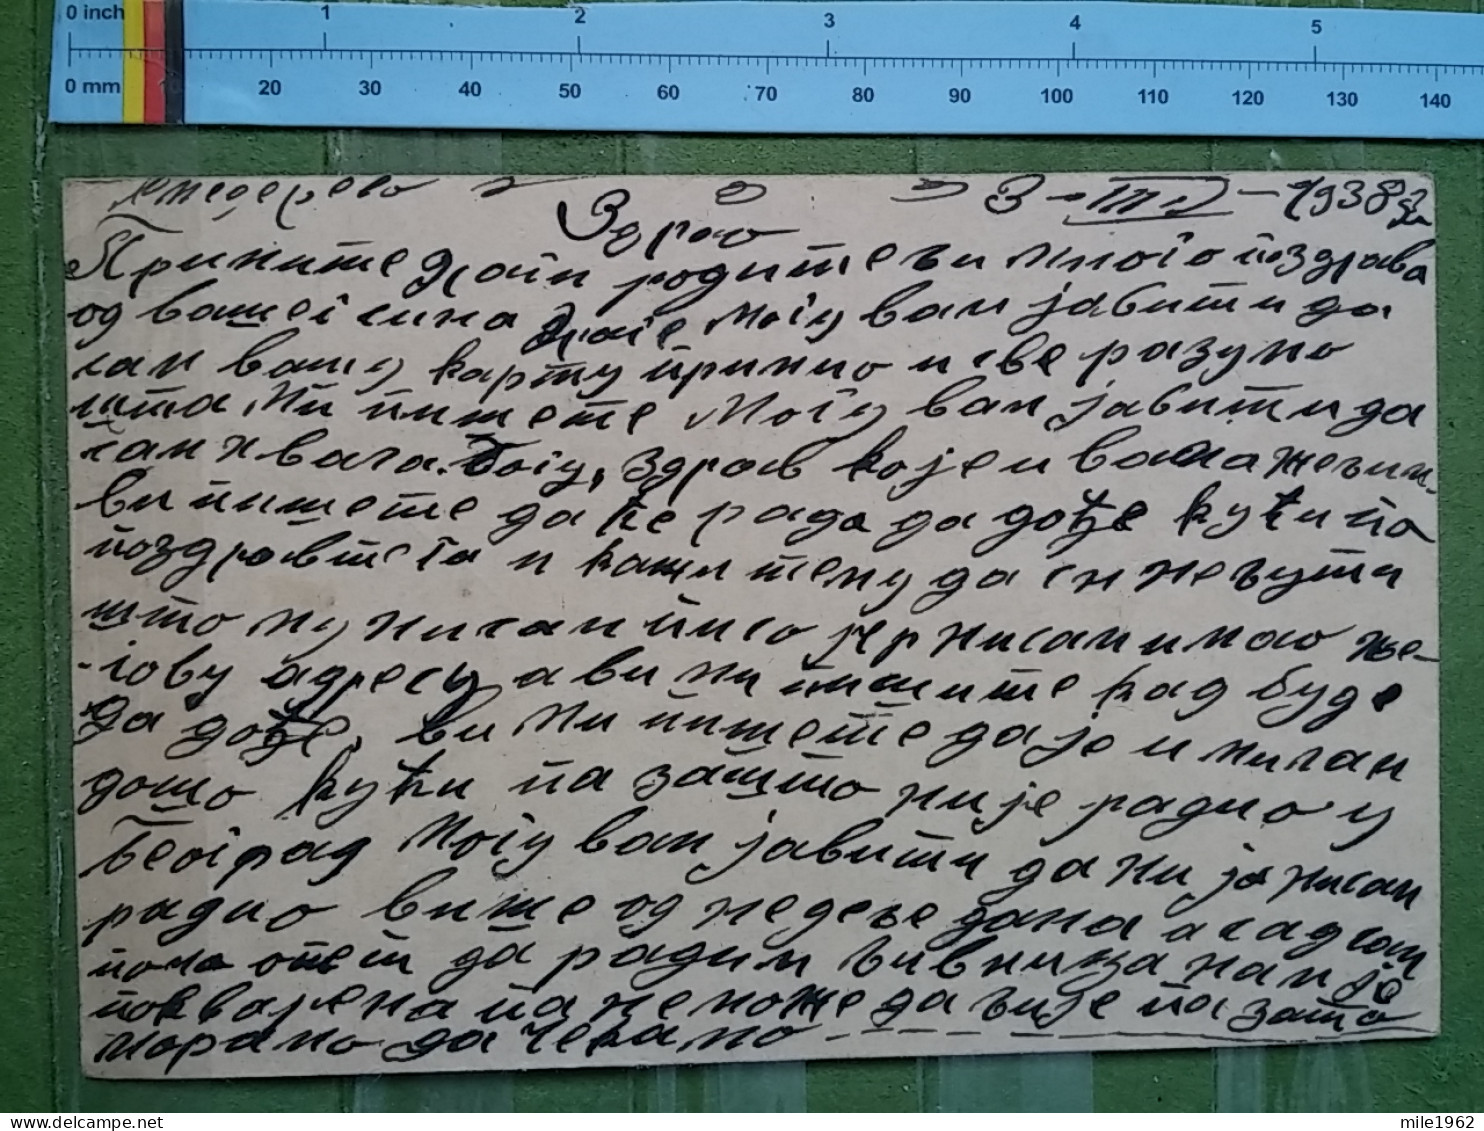 0 inch 1 2 3 4 5
0 mm 10 20 30 40 50 60 70 80 90 100 110 120 130 140
Смедерево 3-III-1938
Здраво
Примите драги родитељи много поздрава
од вашег сина Драге. Могу вам јавити да
сам вашу карту примио и све разумо
шта ми пишете Могу вам јавити да
сам хвала Богу, здрав које и вама желим
ви пишете да ће рада да дође кући па
поздравите га и кажите му да се не љути
што му нисам писо јер нисам имао ње-
гову адресу, а ви ми пишите кад буде
да дође, ви ми пишете да је и милан
дошо кући па зашто није радио у
Београд Могу вам јавити да ни ја нисам
радио више од недеље дана а сад сам
поче опет да радим Ливница нам је
покварена па не може да лије па зато
морамо да чекамо
mile1962